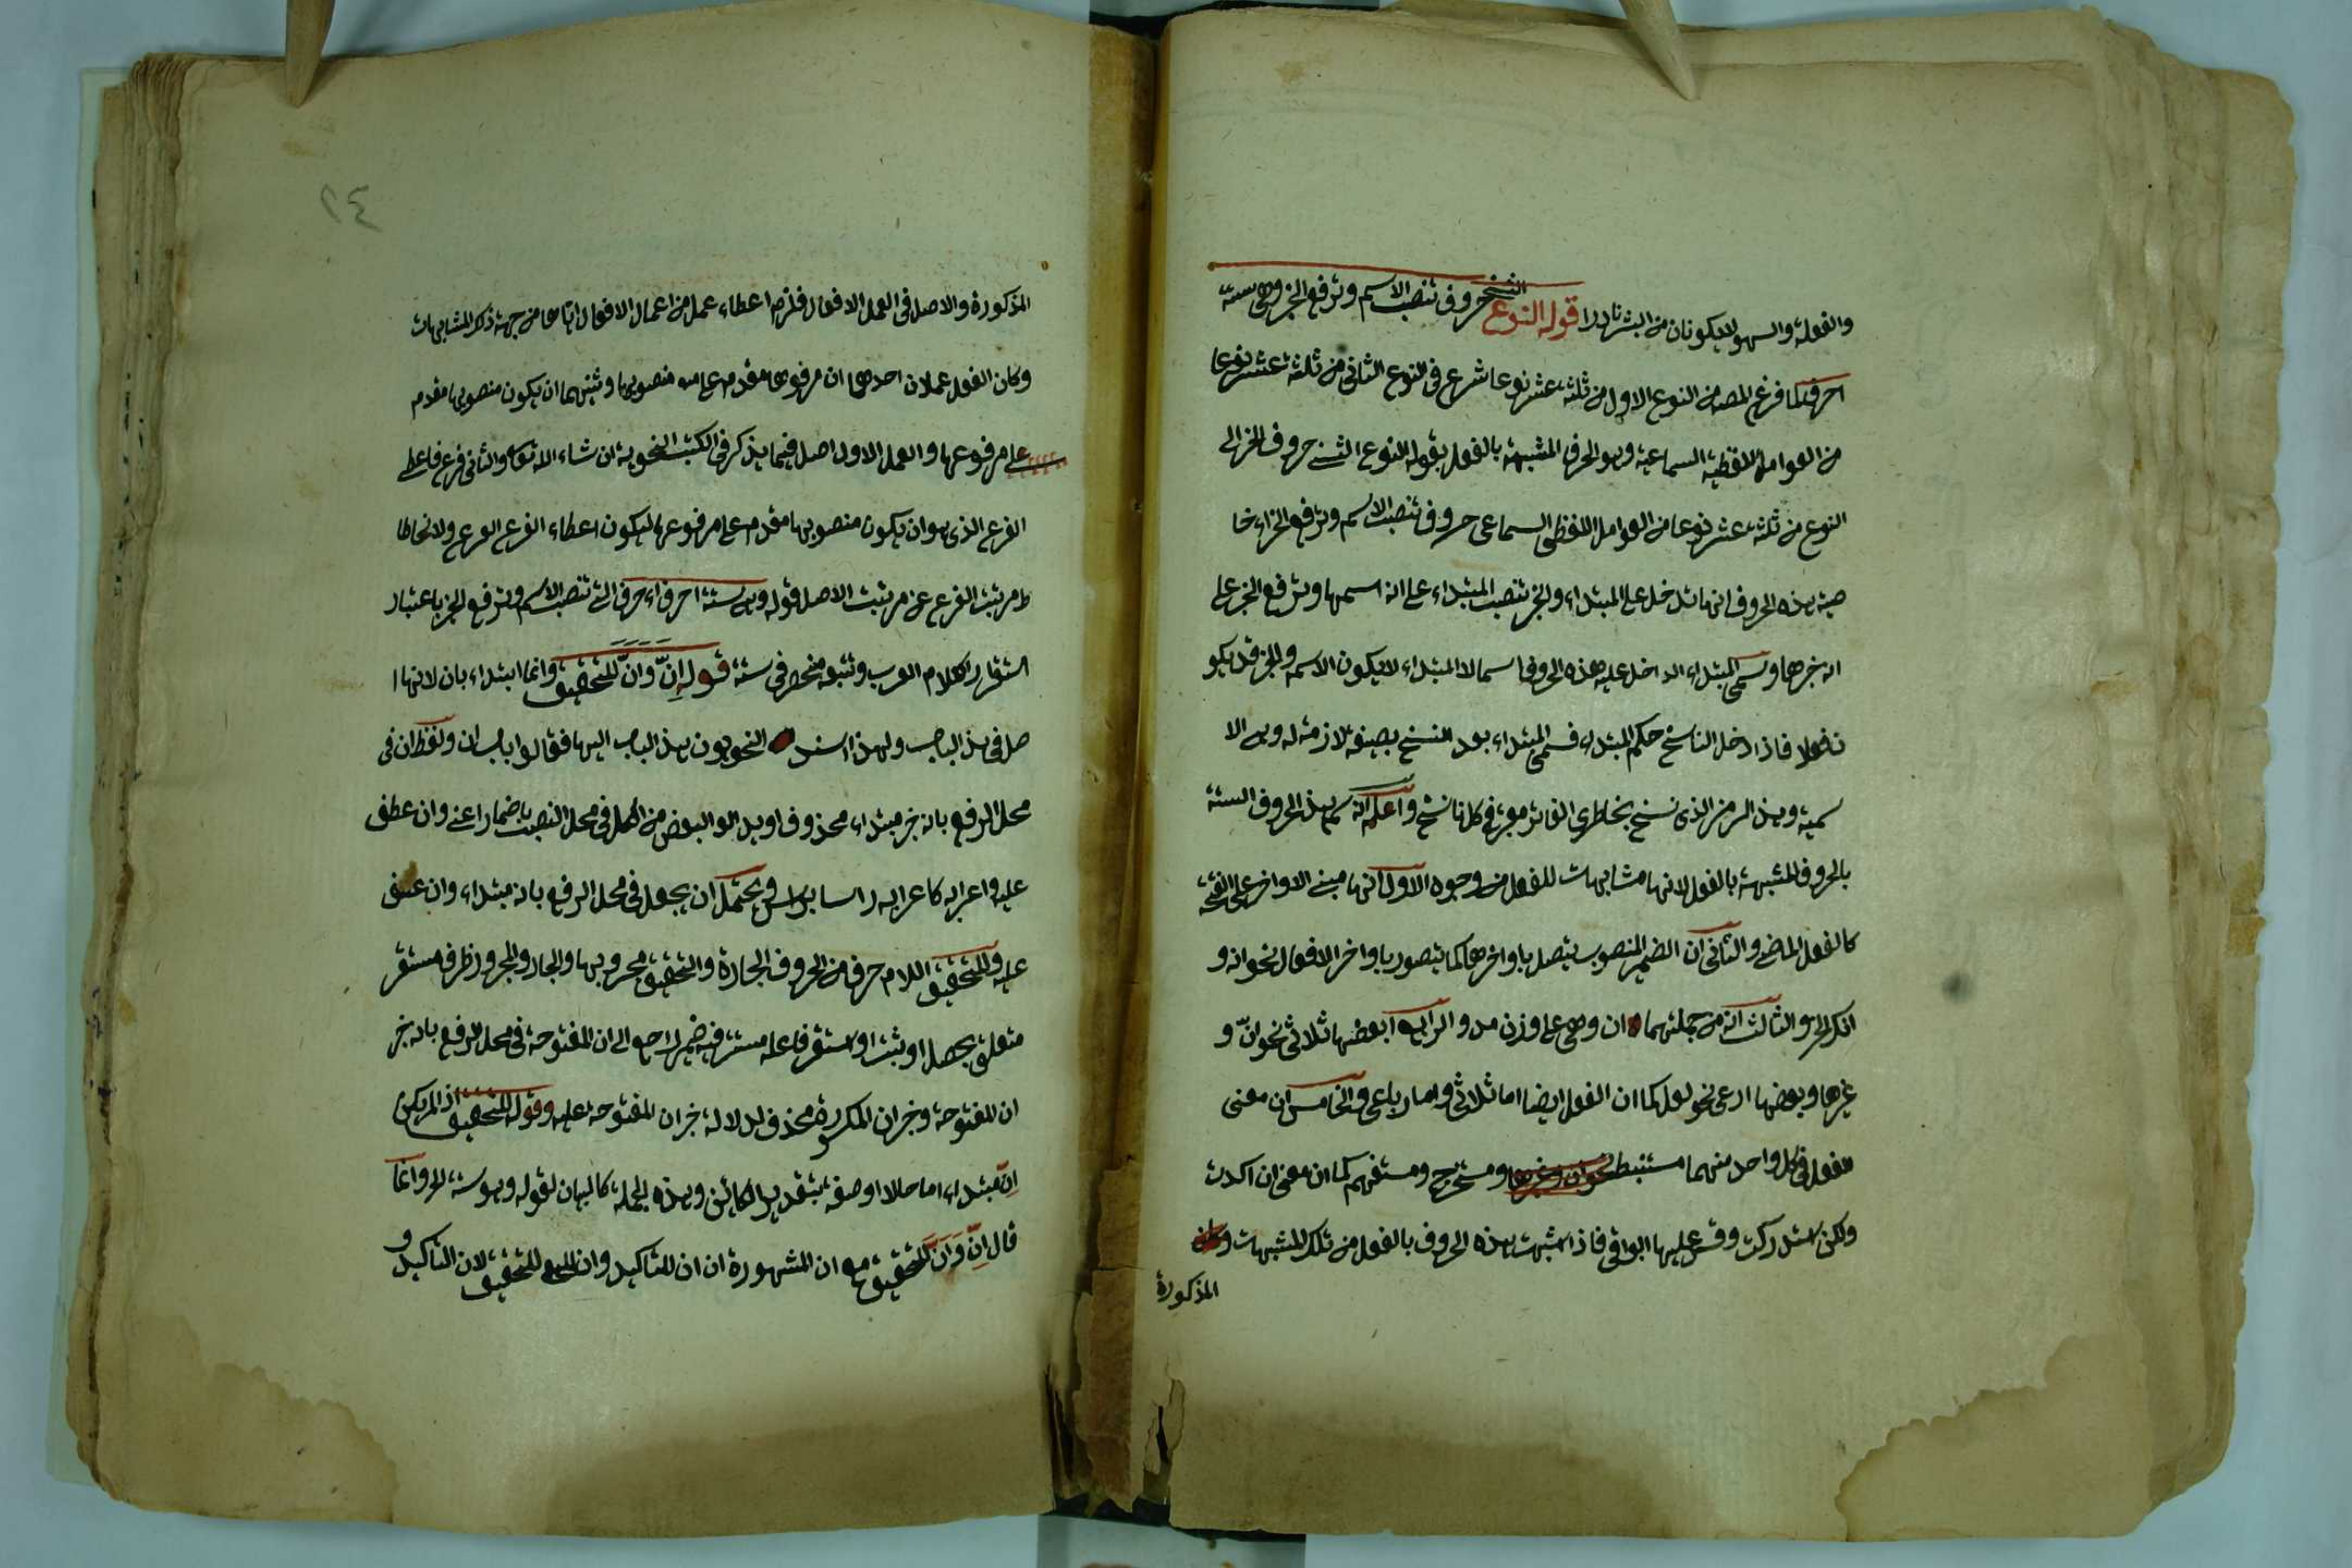 والغفلة والسهو لا يكونان من البشر نادرا قوله النوع الثني حروف تنصب الاسم وترفع الخبر وهي ستة
احرف لما فرغ المصه من النوع الاول من ثلثة عشر نوعا شرع في النوع الثاني من ثلثة عشر نوعا
من العوامل اللفظية السماعية وهو الحرف المشبهة بالفعل بقوله النوع الثني حروف الخ الى
النوع من ثلثة عشر نوعا من العوامل اللفظي السماعى حروف تنصب الاسم وترفع الخبر اء خا
صية هذه الحروف انها تدخل على المبتداء والخبر تنصب المبتداء على انه اسمها وترفع الخبر على
انه خبرها وسمى المبتداء الداخل عليه هذه الحروف اسما لا المبتداء لا يكون الاسم والخبر قد يكو
ن فعلا فاذا دخل الناسخ حكم المبتداء فسمى المبتداء بعد النسخ بصيغة لازمة له وهى الا
سمية وهذا الرمز الذى نسخ بخاطرى الفاتر مجرّ في كل ناسخ واعلم انه سمى هذا الحروف الستة
بالحروف المشبهة بالفعل لانها مشابهات للفعل من وجوه الاول انها مبنى الاواخر على الفتحة
كالفعل الماضى والثانى ان الضمير المنصوب يتصل باواخرها كما يتصور باواخر الافعال نحو انه و
انك الخ والثالث انه من جملتهما ان وهى على وزن مد والرابع ان بعضها ثلاثى نحو انّ و
غيرها وبعضها ارعى نحو لعل كما ان الفعل ايضا اما ثلاثى واما رباعى والخامس ان معنى
الفعل في كل واحد منهما مستنبط نحو ان وغيرها ومستخرج ومستفهم كما ان معنى ان اكدت
ولكن استدركت وقس عليها البواقى فاذا اشبهت هذه الحروف بالفعل من تلك المشبهات وكان
المذكورة
٢٤
المذكورة والاصل في العمل الافعال فلزم اعطاء عمل من اعمال الافعال اياها من جهة ذكر المشابهات
وكان الفعل عملان احدهما ان مرفوعها مقدم على منصوبها وثنيهما ان يكون منصوبها مقدم
على مرفوعها والعمل الاول اصل فيما يذكر في الكتب النحوية ان شاء الله تعالى والثانى فرع فاعطى
الفرع الذى هو ان يكون منصوبها مقدم على مرفوعها ليكون اعطاء الفرع الفرع ولانحطا
ط مرتبت الفرع عن مرتبت الاصل قوله وهى ستة احرف اء احرف التى تنصب الاسم وترفع الخبر باعتبار
استقرار كلام العرب وتتبعه منحصر في ستة قوله اِنّ وانّ للتحقيق وانما ابتداء بان لانها ا
صل في هذ الباب ولهذا اسند النحويون هذ الباب اليها فقالوا باب ان ولفظ ان في
محل الرفع بانه خبر مبتداء محذوف او بدل البعض من الكل في محل النصب باضمار اعنى وان عطف
عليه واعرابه كاعرابه راسا براس ويحتمل ان يجعل في محل الرفع بانه مبتداء وان عطف
عليه وللتحقيق اللام حرف من الحروف الجارة والتحقيق مجرور بها والجار والمجرور ظرف مستقر
متعلق بحصل او ثبت او استقر فاعله مستتر فيه ضمير راجع الى ان المفتوحة في محل الرفع بانه خبر
ان المفتوحة وخبر ان المكسورة محذوف لدلالة خبر ان المفتوحة عليه وقوله للتحقيق اذ لم يكن
اِنّ مبتداء اما حالا او صفة بتقدير الكائن وهذه الجملة كالبيان لقوله وهو ستة الخ وانما
قال اِنّ وَانّ للتحقيق مع ان المشهورة ان ان للتاكيد وان للتحقيق لان التاكيد و